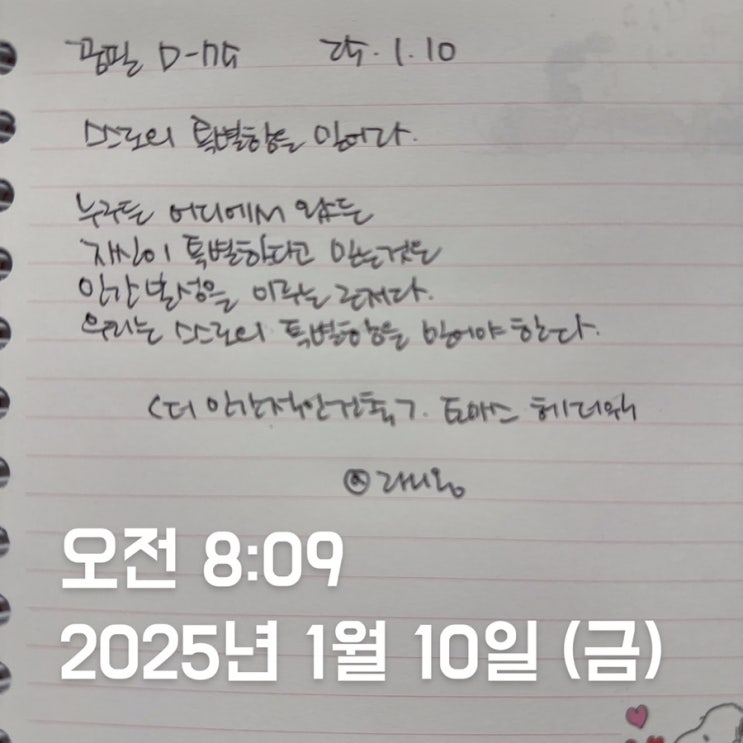 꿈필 25.1.10
스스로의 특별함을 믿어라.
누구든 어디에서 왔든
자신이 특별하다고 믿는것은
인간 번성을 이루는 근거다.
우리는 스스로의 특별함을 믿어야 한다.
<더 인간적인건축>. 토마스 헤더윅
오전 8:09
2025년 1월 10일 (금)